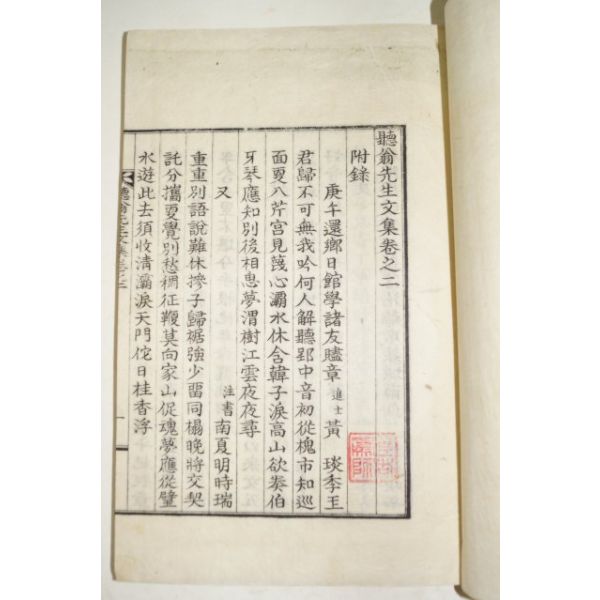 聽翁先生文集卷之二
附錄
庚午還鄉日館學諸友贐章 進士 黃 琰季玉
君歸不可無我吟何人解聽郢中音初從槐市知巡
面更八芹宮見淺心灞水休含韓子淚高山欲奏伯
牙琴應知別後相思夢渭樹江雲夜夜尋
又 注書 南夏明時瑞
重重別語說難休摻子歸裾強少留同榻晚將交契
託分攜更覺別愁稠征鞭莫向家山促魂夢應從璧
水遊此去須收清灞淚天門佗日桂香浮
聽翁先生文集卷之二
一